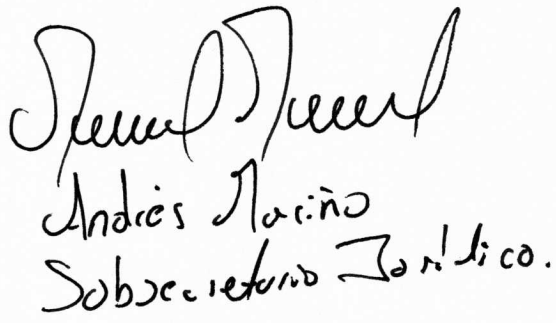 Andrés Mariño
Subsecretario Jurídico.